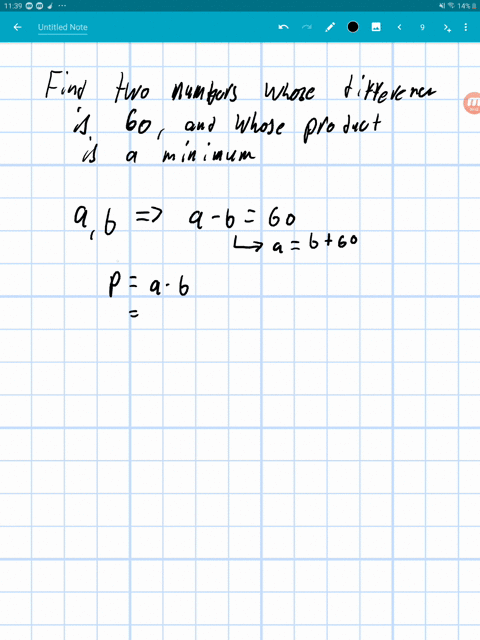 11:39
14%
Untitled Note
9
Find two numbers whose difference
is 60, and whose product
is a minimum
a, b => a - b = 60
a = b + 60
P = a · b
=